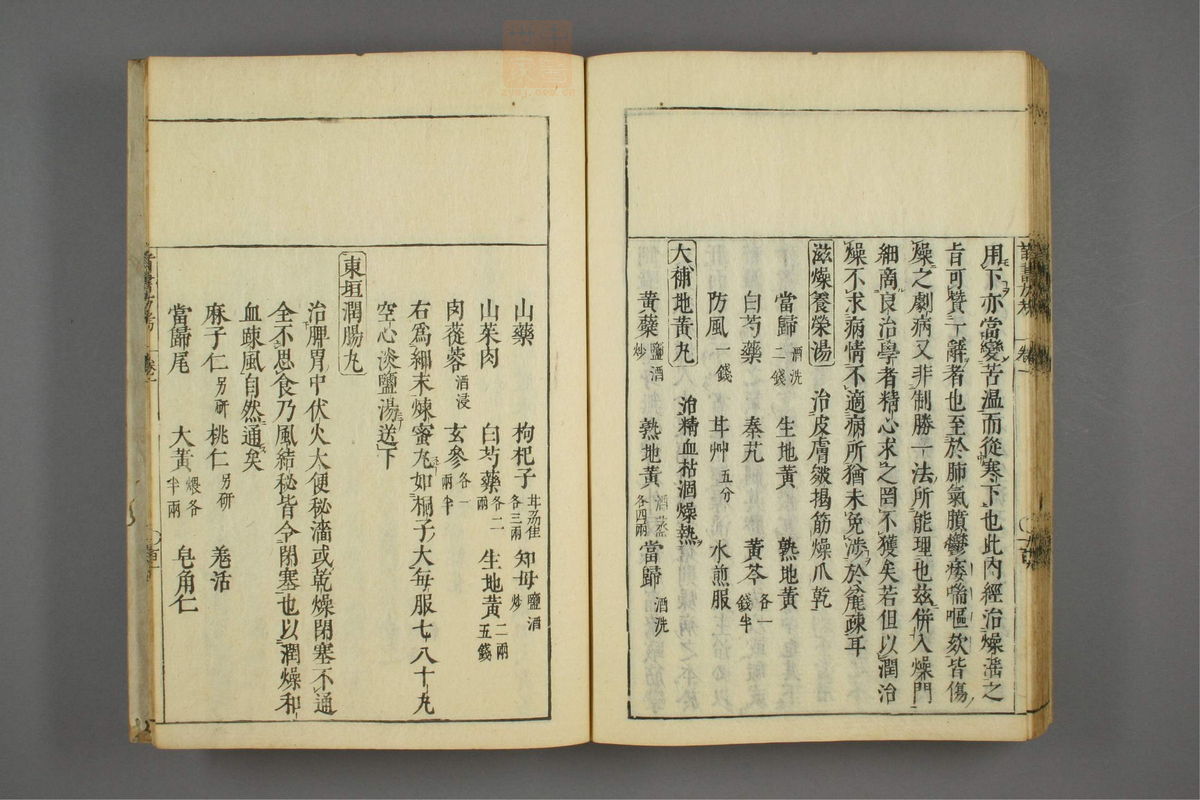 用下亦當變苦温而從寒下也此内經治燥淫之
旨可贊一辭者也至於肺氣膹鬱痿喘嘔欬皆傷
燥之劇病又非制勝一法所能理也兹併入燥門
細商良治學者精心求之罔不獲矣若但以潤治
燥不求病情不適病所猶未免渉於麄疎耳
滋燥養榮湯 治皮膚皴揭筋燥爪乾
當歸 酒洗二錢 生地黄 熟地黄
白芍藥 秦艽 黄芩 各一錢半
防風 一錢 甘艸 五分 水煎服
大補地黄丸 治精血枯涸燥熱
黄蘗 鹽酒炒 熟地黄 酒蒸各四兩 當歸 酒洗
山藥 枸杞子 甘州佳各三兩 知母 鹽酒炒
山茱肉 白芍藥 各二兩 生地黄 二兩五錢
肉蓯蓉 酒浸 玄參 各一兩半
右爲細末煉蜜丸如桐子大每服七八十丸
空心淡鹽湯送下
東垣潤腸丸
治脾胃中伏火大便秘濇或乾燥閉塞不通
全不思食乃風結秘皆令閉塞也以潤燥和
血踈風自然通矣
麻子仁 另研 桃仁 另研 羌活
當歸尾 大黄 煨各半兩 皂角仁